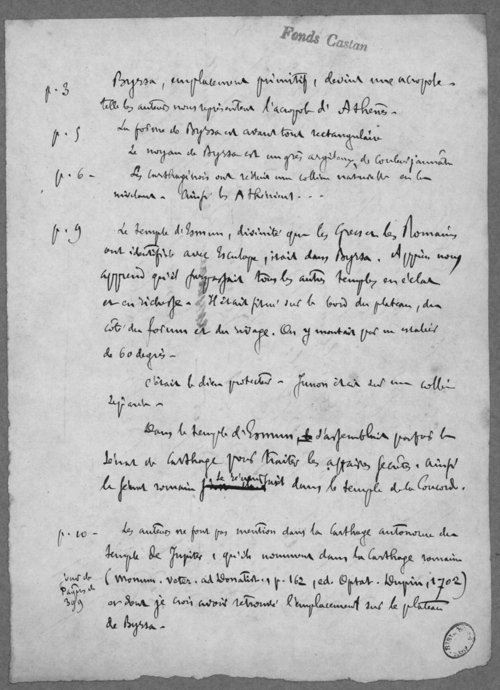 Fonds Castan
p. 3 Byrsa, emplacement primitif, devint une acropole -
telle les auteurs nous représentent l'acropole d'Athènes -
p. 5 La forme de Byrsa est avant tout rectangulaire
Le noyau de Byrsa est un grès argileux de couleur jaunâtre
p. 6 - Les Carthaginois ont réduit une colline naturelle en la
nivelant - Ainsi les Athéniens . . -
p. 9 Le temple d'Esmun, divinité que les Grecs et les Romains
ont identifiée avec Esculape, était dans Byrsa. Appien nous
apprend qu'il surpassait tous les autres temples en éclat
et en richesse - Il était situé sur le bord du plateau, du
côté du forum et du rivage. On y montait par un escalier
de 60 degrés -
C'était le dieu protecteur - Junon était sur une colline
séparée -
Dans le temple d'Esmun, s'assemblait parfois le
Sénat de Carthage pour traiter les affaires secrètes. Ainsi
le sénat romain se réunissait dans le temple de la Concorde.
p. 10 - Les auteurs ne font pas mention dans la Carthage autonome du
temple de Jupiter, qu'ils nomment dans la Carthage romaine
(Monum. veter. ad Donatist. p. 162, ed. Optat. Dupin, 1702)
et dont je crois avoir retrouvé l'emplacement sur le plateau
de Byrsa -